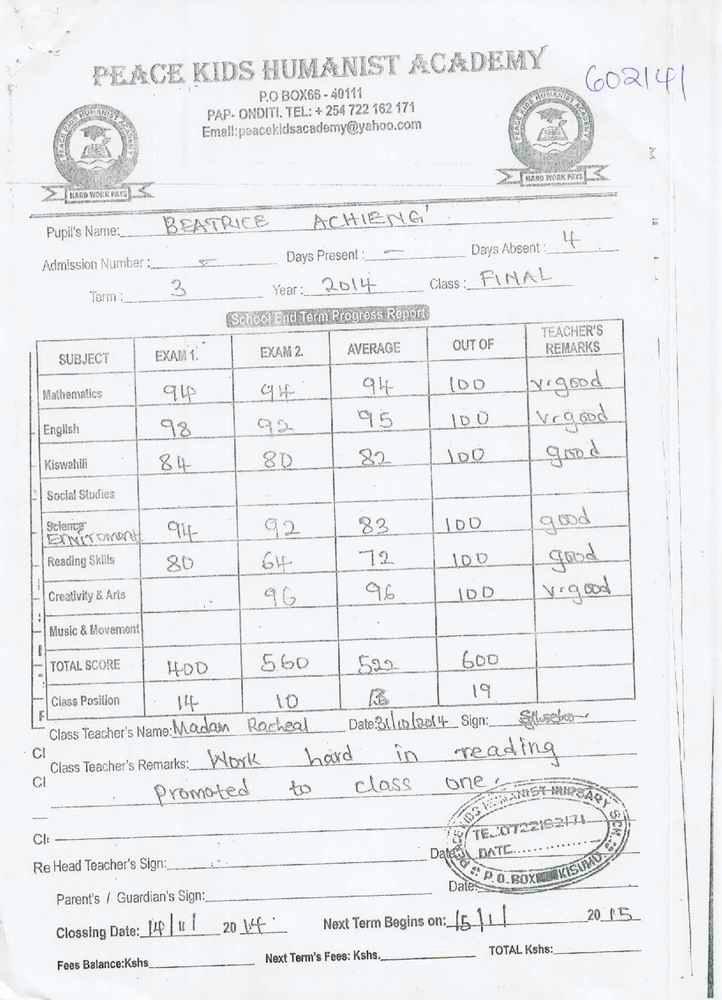 PEACE KIDS HUMANIST ACADEMY
602141
P.O BOX66 - 40111
PAP- ONDITI. TEL: + 254 722 162 171
Email:peacekidsacademy@yahoo.com
PEACE KIDS HUMANIST ACADEMY
HARD WORK PAYS
PEACE KIDS HUMANIST ACADEMY
HARD WORK PAYS
Pupil's Name: BEATRICE ACHIENG'
Admission Number : - Days Present : - Days Absent : 4
Term : 3 Year : 2014 Class : FINAL
School End Term Progress Report
SUBJECT EXAM 1. EXAM 2. AVERAGE OUT OF TEACHER'S REMARKS
Mathematics 94 94 94 100 v.good
English 98 92 95 100 v.good
Kiswahili 84 80 82 100 good
Social Studies
Science Enviroment 94 92 83 100 good
Reading Skills 80 64 72 100 good
Creativity & Arts 96 96 100 v.good
Music & Movement
TOTAL SCORE 400 560 522 600
Class Position 14 10 19
Class Teacher's Name: Madam Racheal Date: 31/10/2014 Sign:
Cl
Class Teacher's Remarks: Work hard in reading
Cl
promoted to class one.
Cl
Re Head Teacher's Sign: Date
PEACE KIDS HUMANIST NURSARY SCH.
TEL.0722162171
DATE
P.O.BOX KISUMU
Parent's / Guardian's Sign: Date
Clossing Date: 14/11/ 2014. Next Term Begins on: 5/1/ 2015
Fees Balance:Kshs Next Term's Fees: Kshs. TOTAL Kshs: